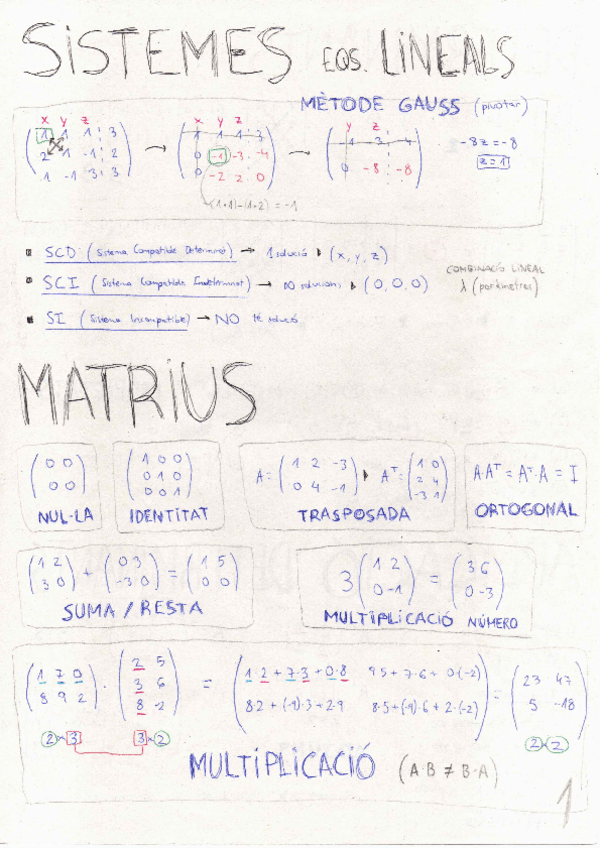 SISTEMES EQS. LINEALS
MÈTODE GAUSS (pivotar)
x y z
1 1 1 3
2 1 -1 2
1 -1 3 3
→
x y z
1 1 1 3
0 -1 -3 -4
0 -2 2 0
(1·1)-(1·2) = -1
→
y z
-1 -3 -4
0 -8 -8
-8z = -8
z = 1
SCD (Sistema Compatible Determinat) → 1 solució (x, y, z)
SCI (Sistema Compatible Indeterminat) → ∞ solucions (0, 0, 0)
COMBINACIÓ LINEAL
λ (paràmetres)
SI (Sistema Incompatible) → NO té solució
MATRIUS
(0 0
0 0)
NUL·LA
(1 0 0
0 1 0
0 0 1)
IDENTITAT
A = (1 2 -3
0 4 -1)
Aᵀ = (1 0
2 4
-3 1)
TRASPOSADA
A·Aᵀ = Aᵀ·A = I
ORTOGONAL
(1 2
3 0) + (0 3
-3 0) = (1 5
0 0)
SUMA / RESTA
3 (1 2
0 -1) = (3 6
0 -3)
MULTIPLICACIÓ NÚMERO
(1 7 0
8 9 2) · (2 5
3 6
8 -2) =
1·2 + 7·3 + 0·8
8·2 + (-9)·3 + 2·9
8·5 + (-9)·6 + 2·(-2)
= (23 47
5 -18)
2×3 3×2 2×2
MULTIPLICACIÓ (A·B ≠ B·A)
1